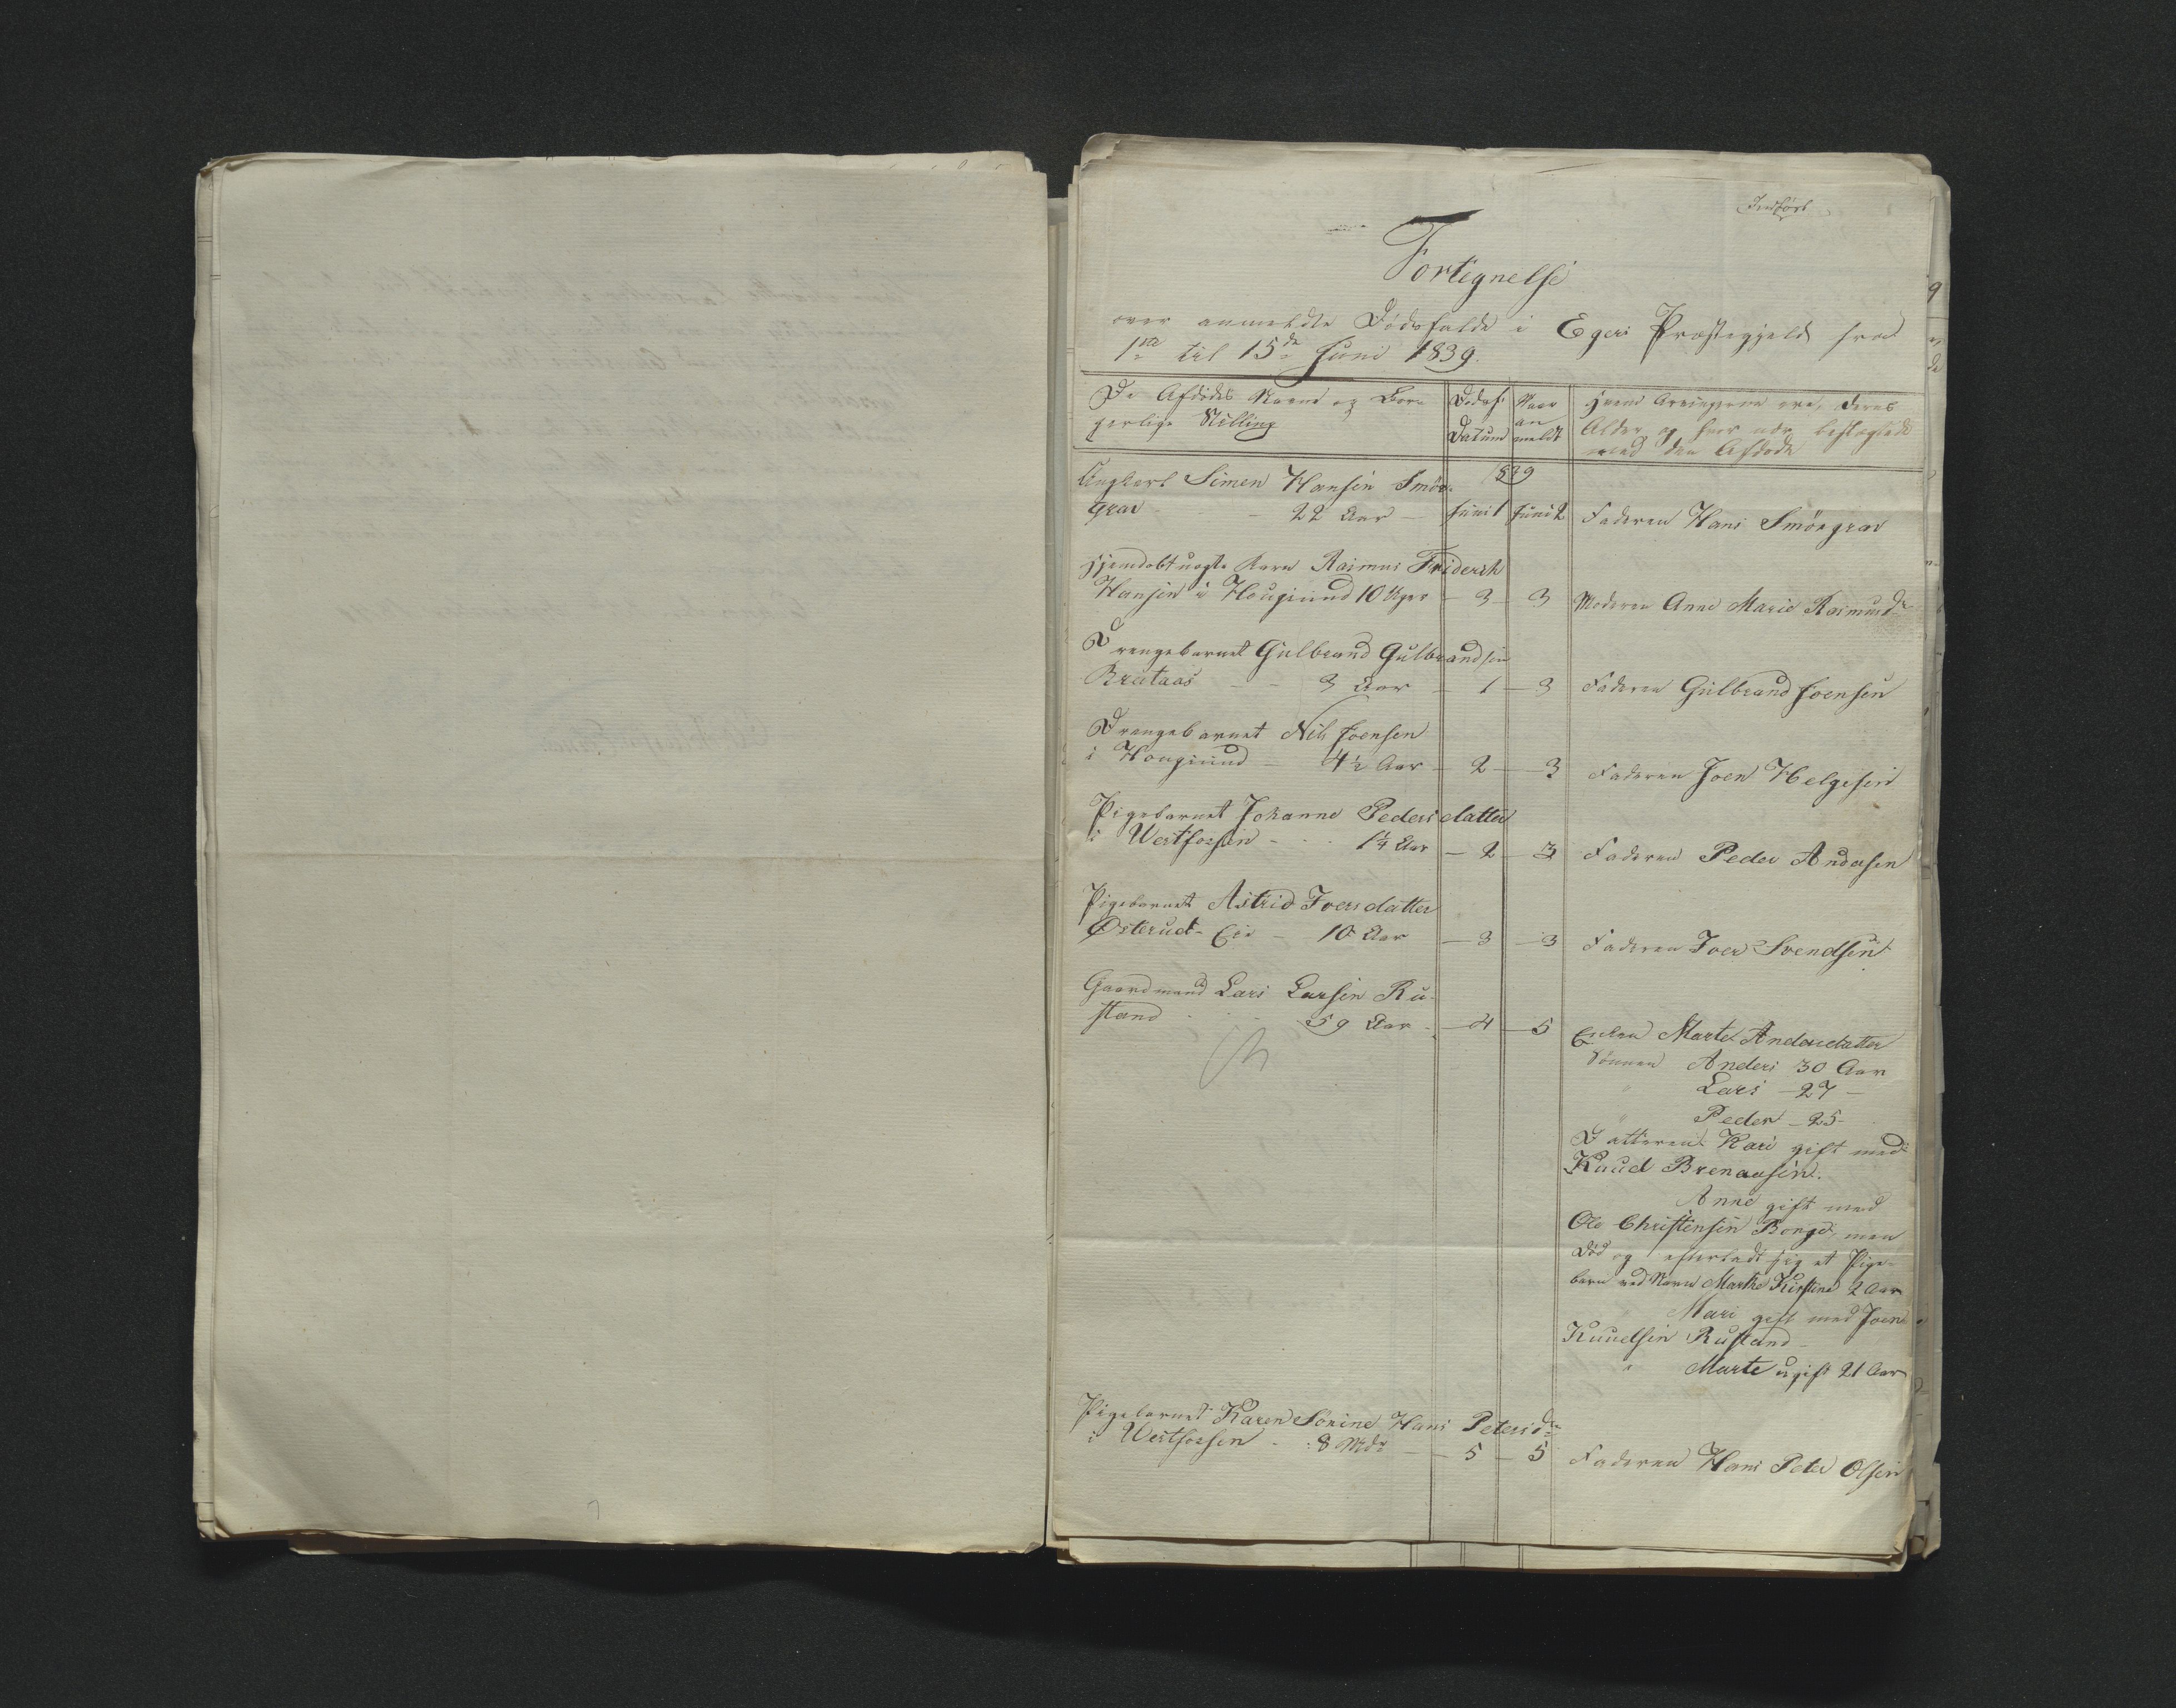 Indført
Fortegnelse
over anmeldte Dødsfalde i Egers Præstegjeld fra
1ste til 15de Juni 1839.
De Afdødes Navne og Bor-
gerlige Stilling
Dødsf:
Datum
Naar
an
meldt
Hvem Arvingerne ere, deres
Alder og hvor nær beslægtede
med den Afdøde
1839
Ungkarl Simen Hansen Smør-
grav - 22 Aar - Juni 1 Juni 2 Faderen Hans Smørgrav
Hjemdøbt uægte Barn Rasmus Friderch
Hansen i Hougsund 10 Uger - 3 - 3 Moderen Anne Marie Rasmusdr
Drengebarnet Gulbrand Gulbrandsen
Brataas - - 3 Aar - 1 - 3 Faderen Gulbrand Joensen
Drengebarnet Nils Joensen
i Hougsund - 4½ Aar - 2 - 3 Faderen Joen Helgesen
Pigebarnet Johanne Pedersdatter
i Westfossen - 1¼ Aar - 2 - 3 Faderen Peder Andersen
Pigebarnet Astrid Iversdatter
Østerud- Eie - 10 Aar - 3 - 3 Faderen Iver Svendsen
Gaardmand Lars Larsen Ru-
stand - 59 Aar - 4 - 5 Enken Marte Andersdatter
Sønnen Anders 30 Aar
" Lars - 27 -
" Peder - 25 -
Datteren Kari gift med
Knud Brenaasen.
Anne gift med
Ole Christensen Bonge, men
død og efterladt sig et Pige-
barn ved Navn Marthe Kirstine 2 Aar
Mari gift med Joen
Knudsen Rustand -
" Marte ugift 21 Aar
Pigebarnet Karen Sørine Hans Petersdr
i Westfossen - 8 Mdr - 5 - 5 Faderen Hans Peter Olsen